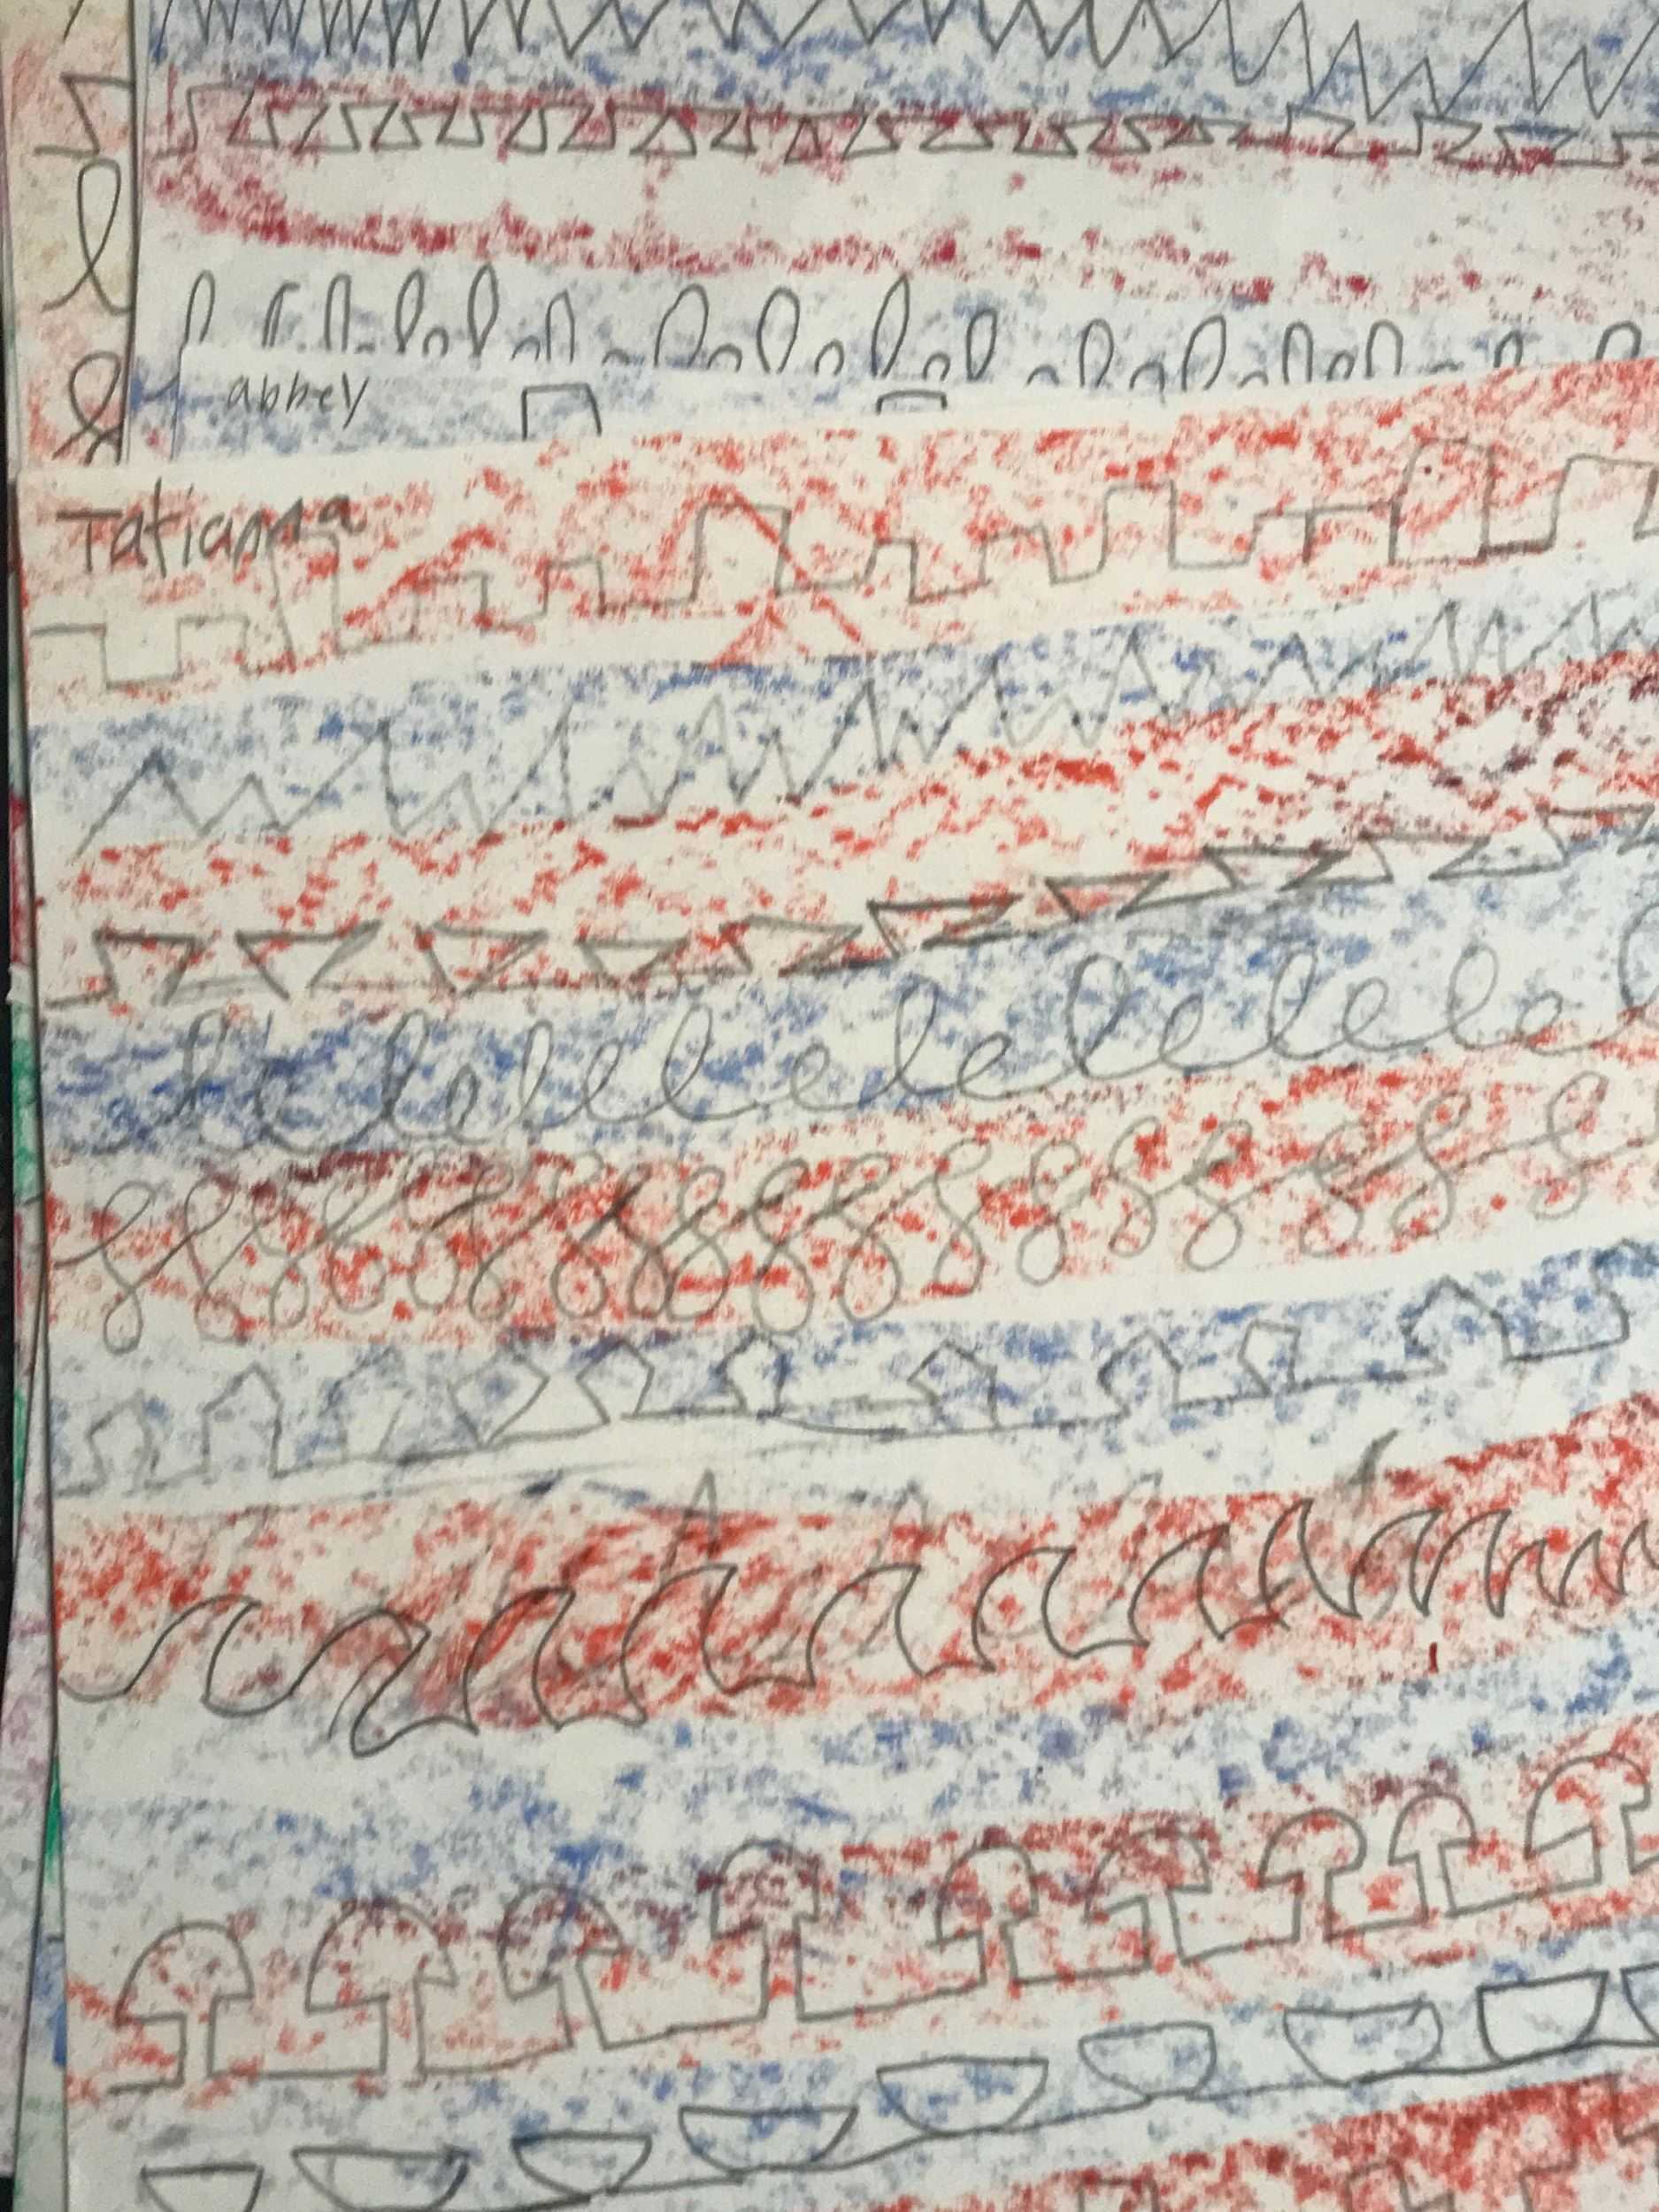 abbey
Tatianna